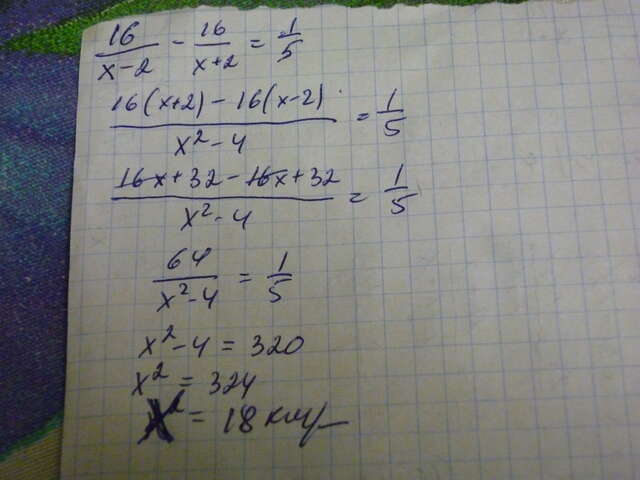 16/(x-2) - 16/(x+2) = 1/5
(16(x+2) - 16(x-2))/(x²-4) = 1/5
(16x+32-16x+32)/(x²-4) = 1/5
64/(x²-4) = 1/5
x²-4 = 320
x² = 324
x² = 18